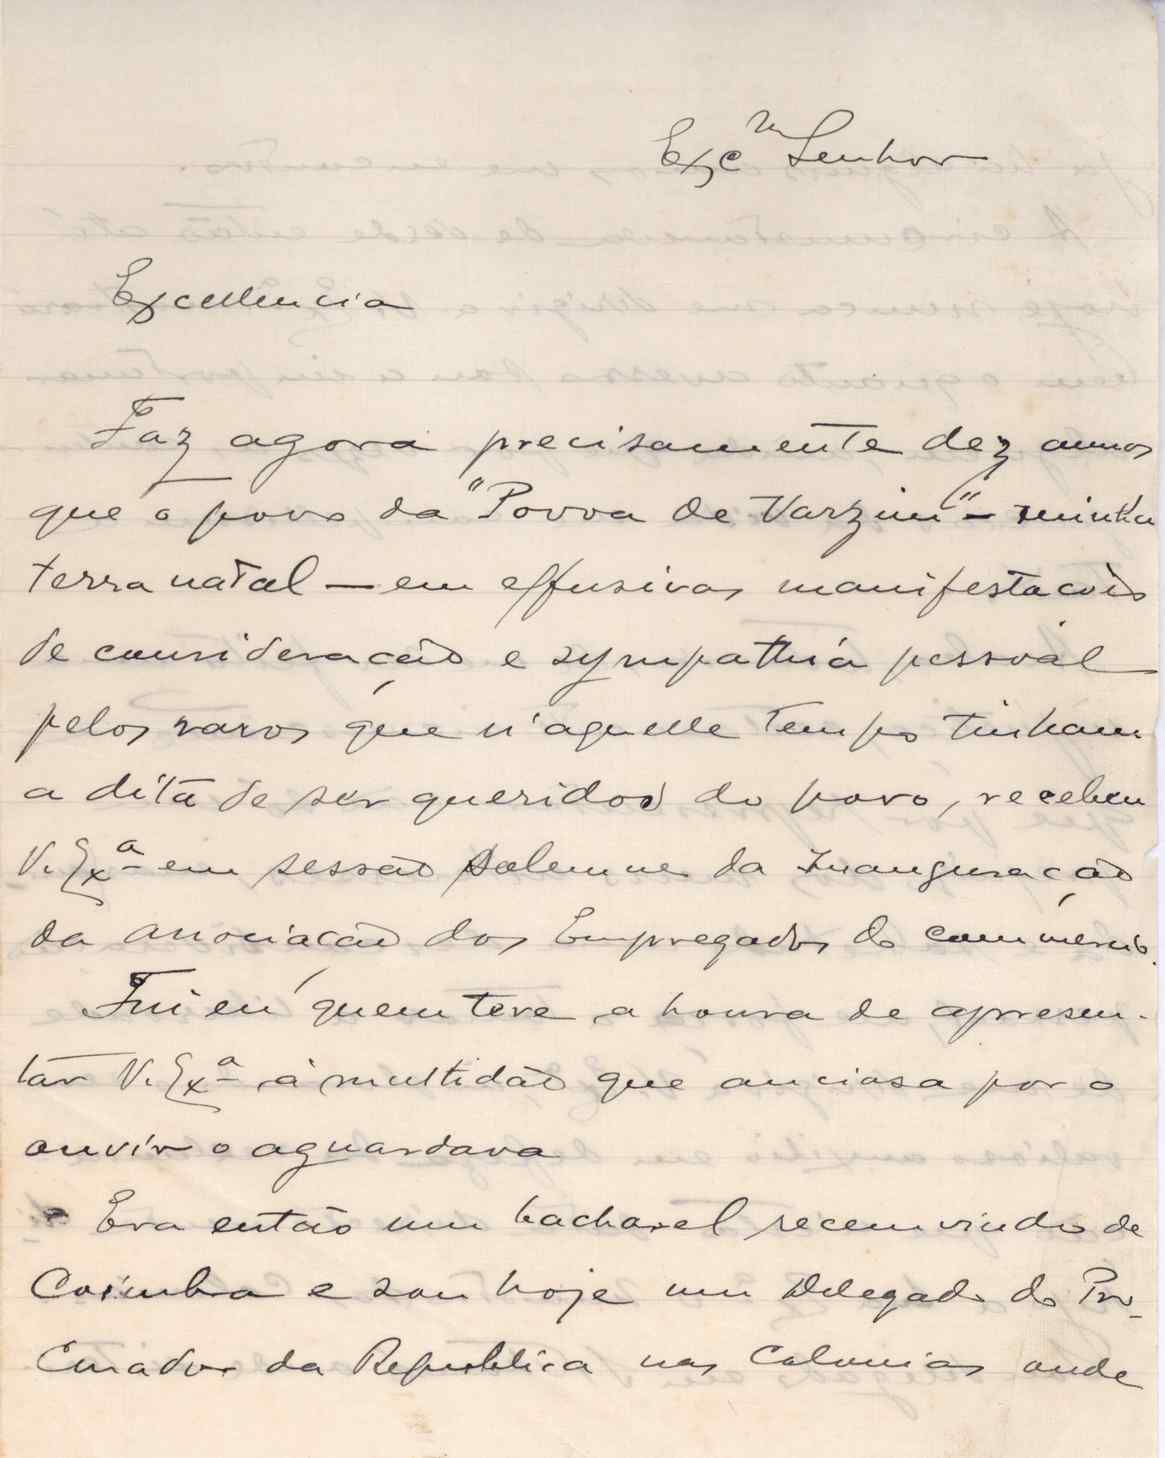 Exc.m Senhor
Excellencia
Faz agora precisamente dez annos
que o povo da "Povoa de Varzim" - minha
terra natal - em effusivas manifestacões
de consideração e sympathia pessoal
pelos raros que n'aquelle tempo tinham
a dita de ser queridos do povo, recebeu
V. Exª em sessão solemne da inauguração
da associacão dos Empregados do commercio.
Fui eu quem teve a honra de apresen-
tar V. Exª á multidão que anciosa por o
ouvir o aguardava
Era então um bacharel recemvindo de
Coimbra e sou hoje um Delegado do Pro-
curador da Republica nas Colonias onde